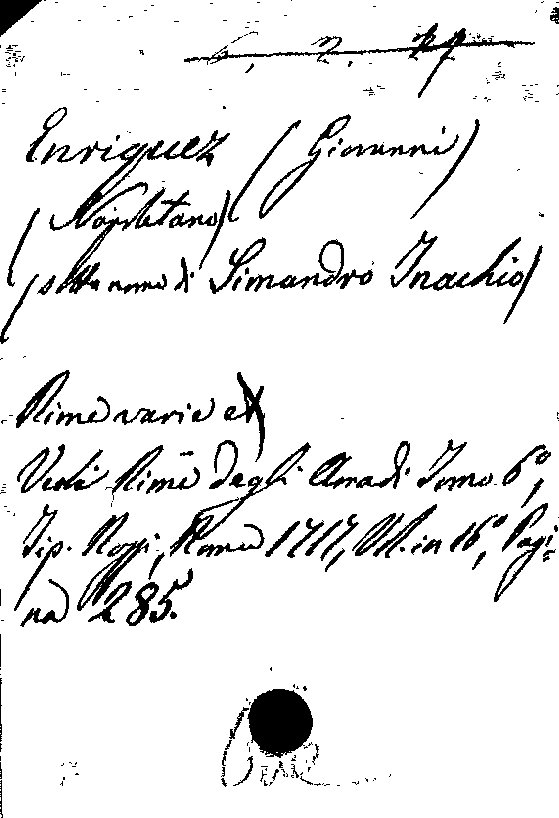 6. 2. 27
Enriquez (Giovanni)
(Napoletano)
(sotto nome di Simandro Inachio)
Rime varie
Vedi Rime degli Arcadi Tomo 6°,
Tip. Rossi, Roma 1717, Vol. in 16°, Pagi=
na 285.